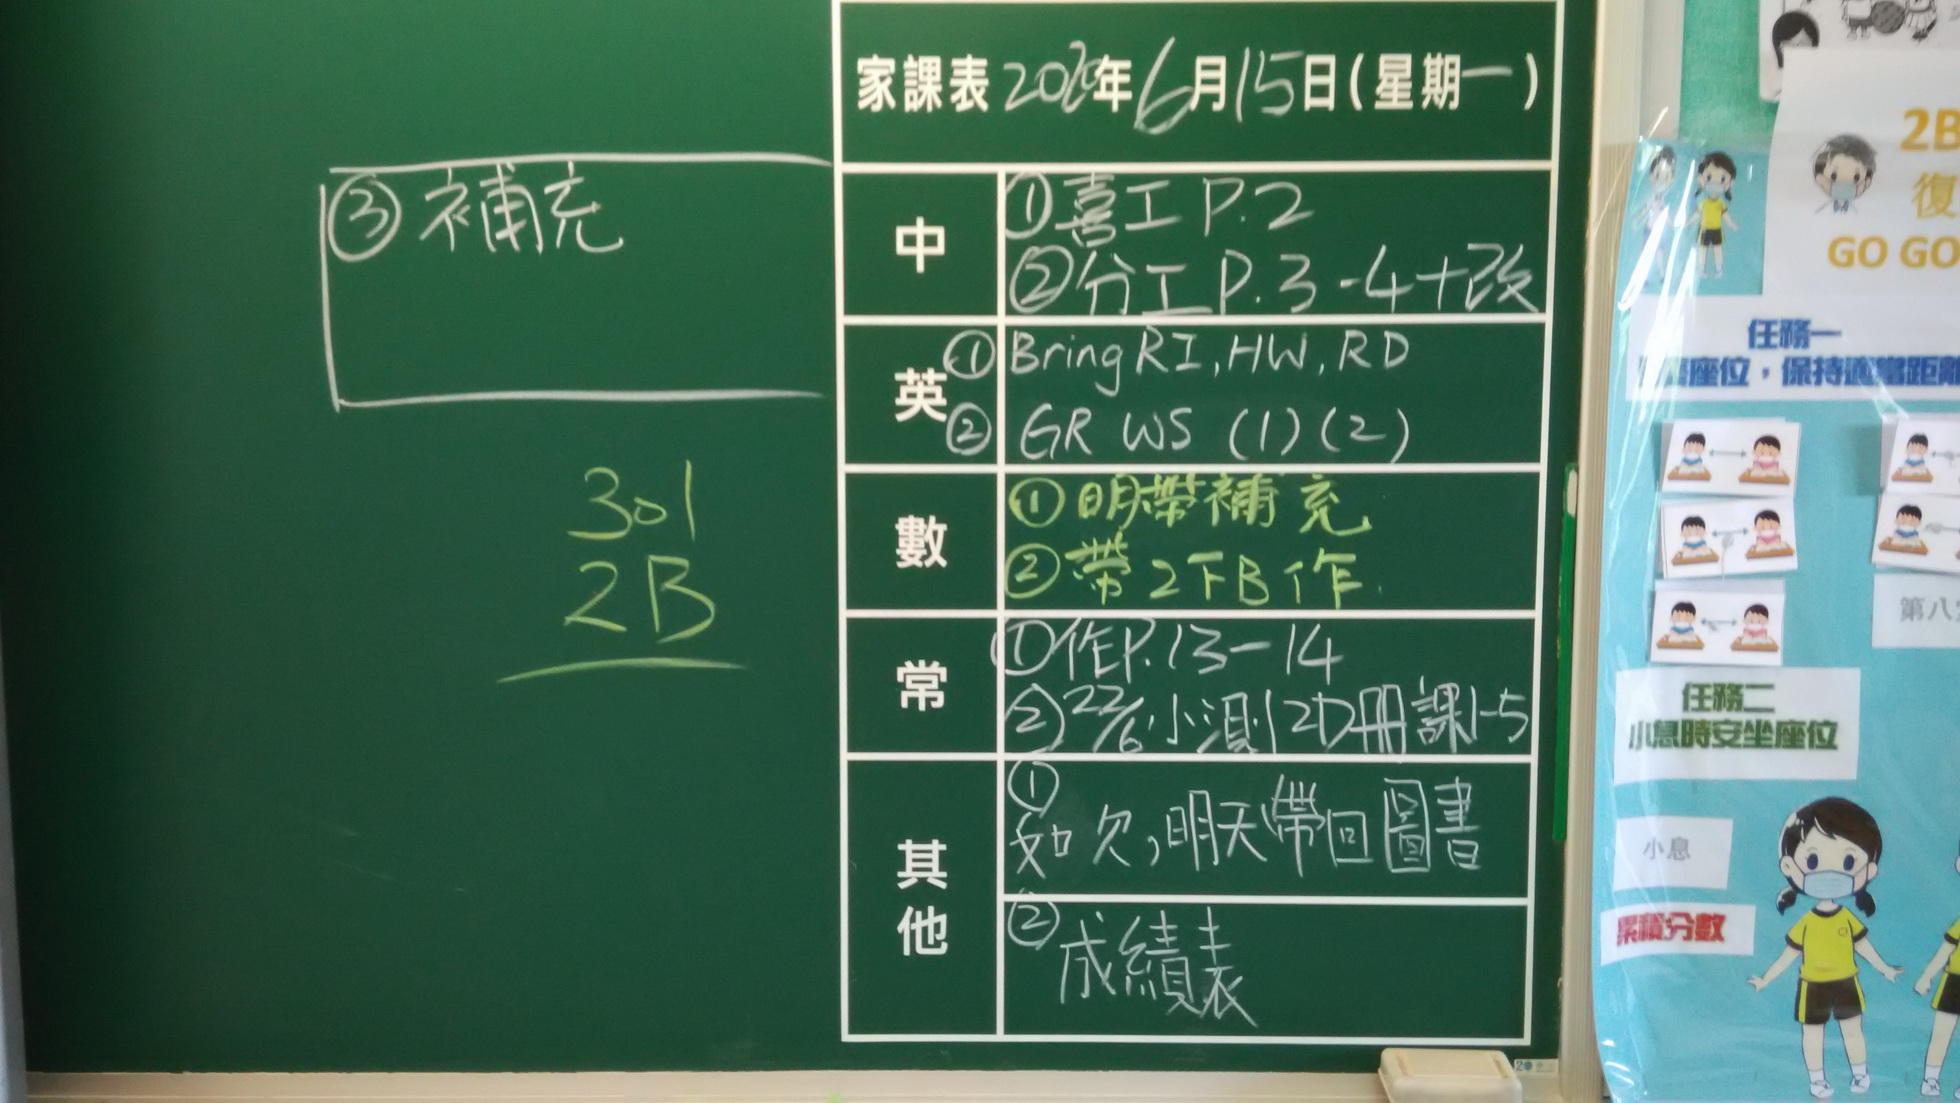 家課表2020年6月15日(星期一)
③補充
中
①喜工 P.2
②分工 P.3-4+改
英
①Bring RI, HW, RD
② GR WS (1)(2)
301
2B
數
①明帶補充
②帶2下B作.
常
①作P.13-14
②22/6小測2D冊課1-5
其他
①
如欠,明天帶回圖書
②成績表
2B
復
GO GO
任務一
座位,保持適當距離
第八
任務二
小息時安坐座位
小息
累積分數